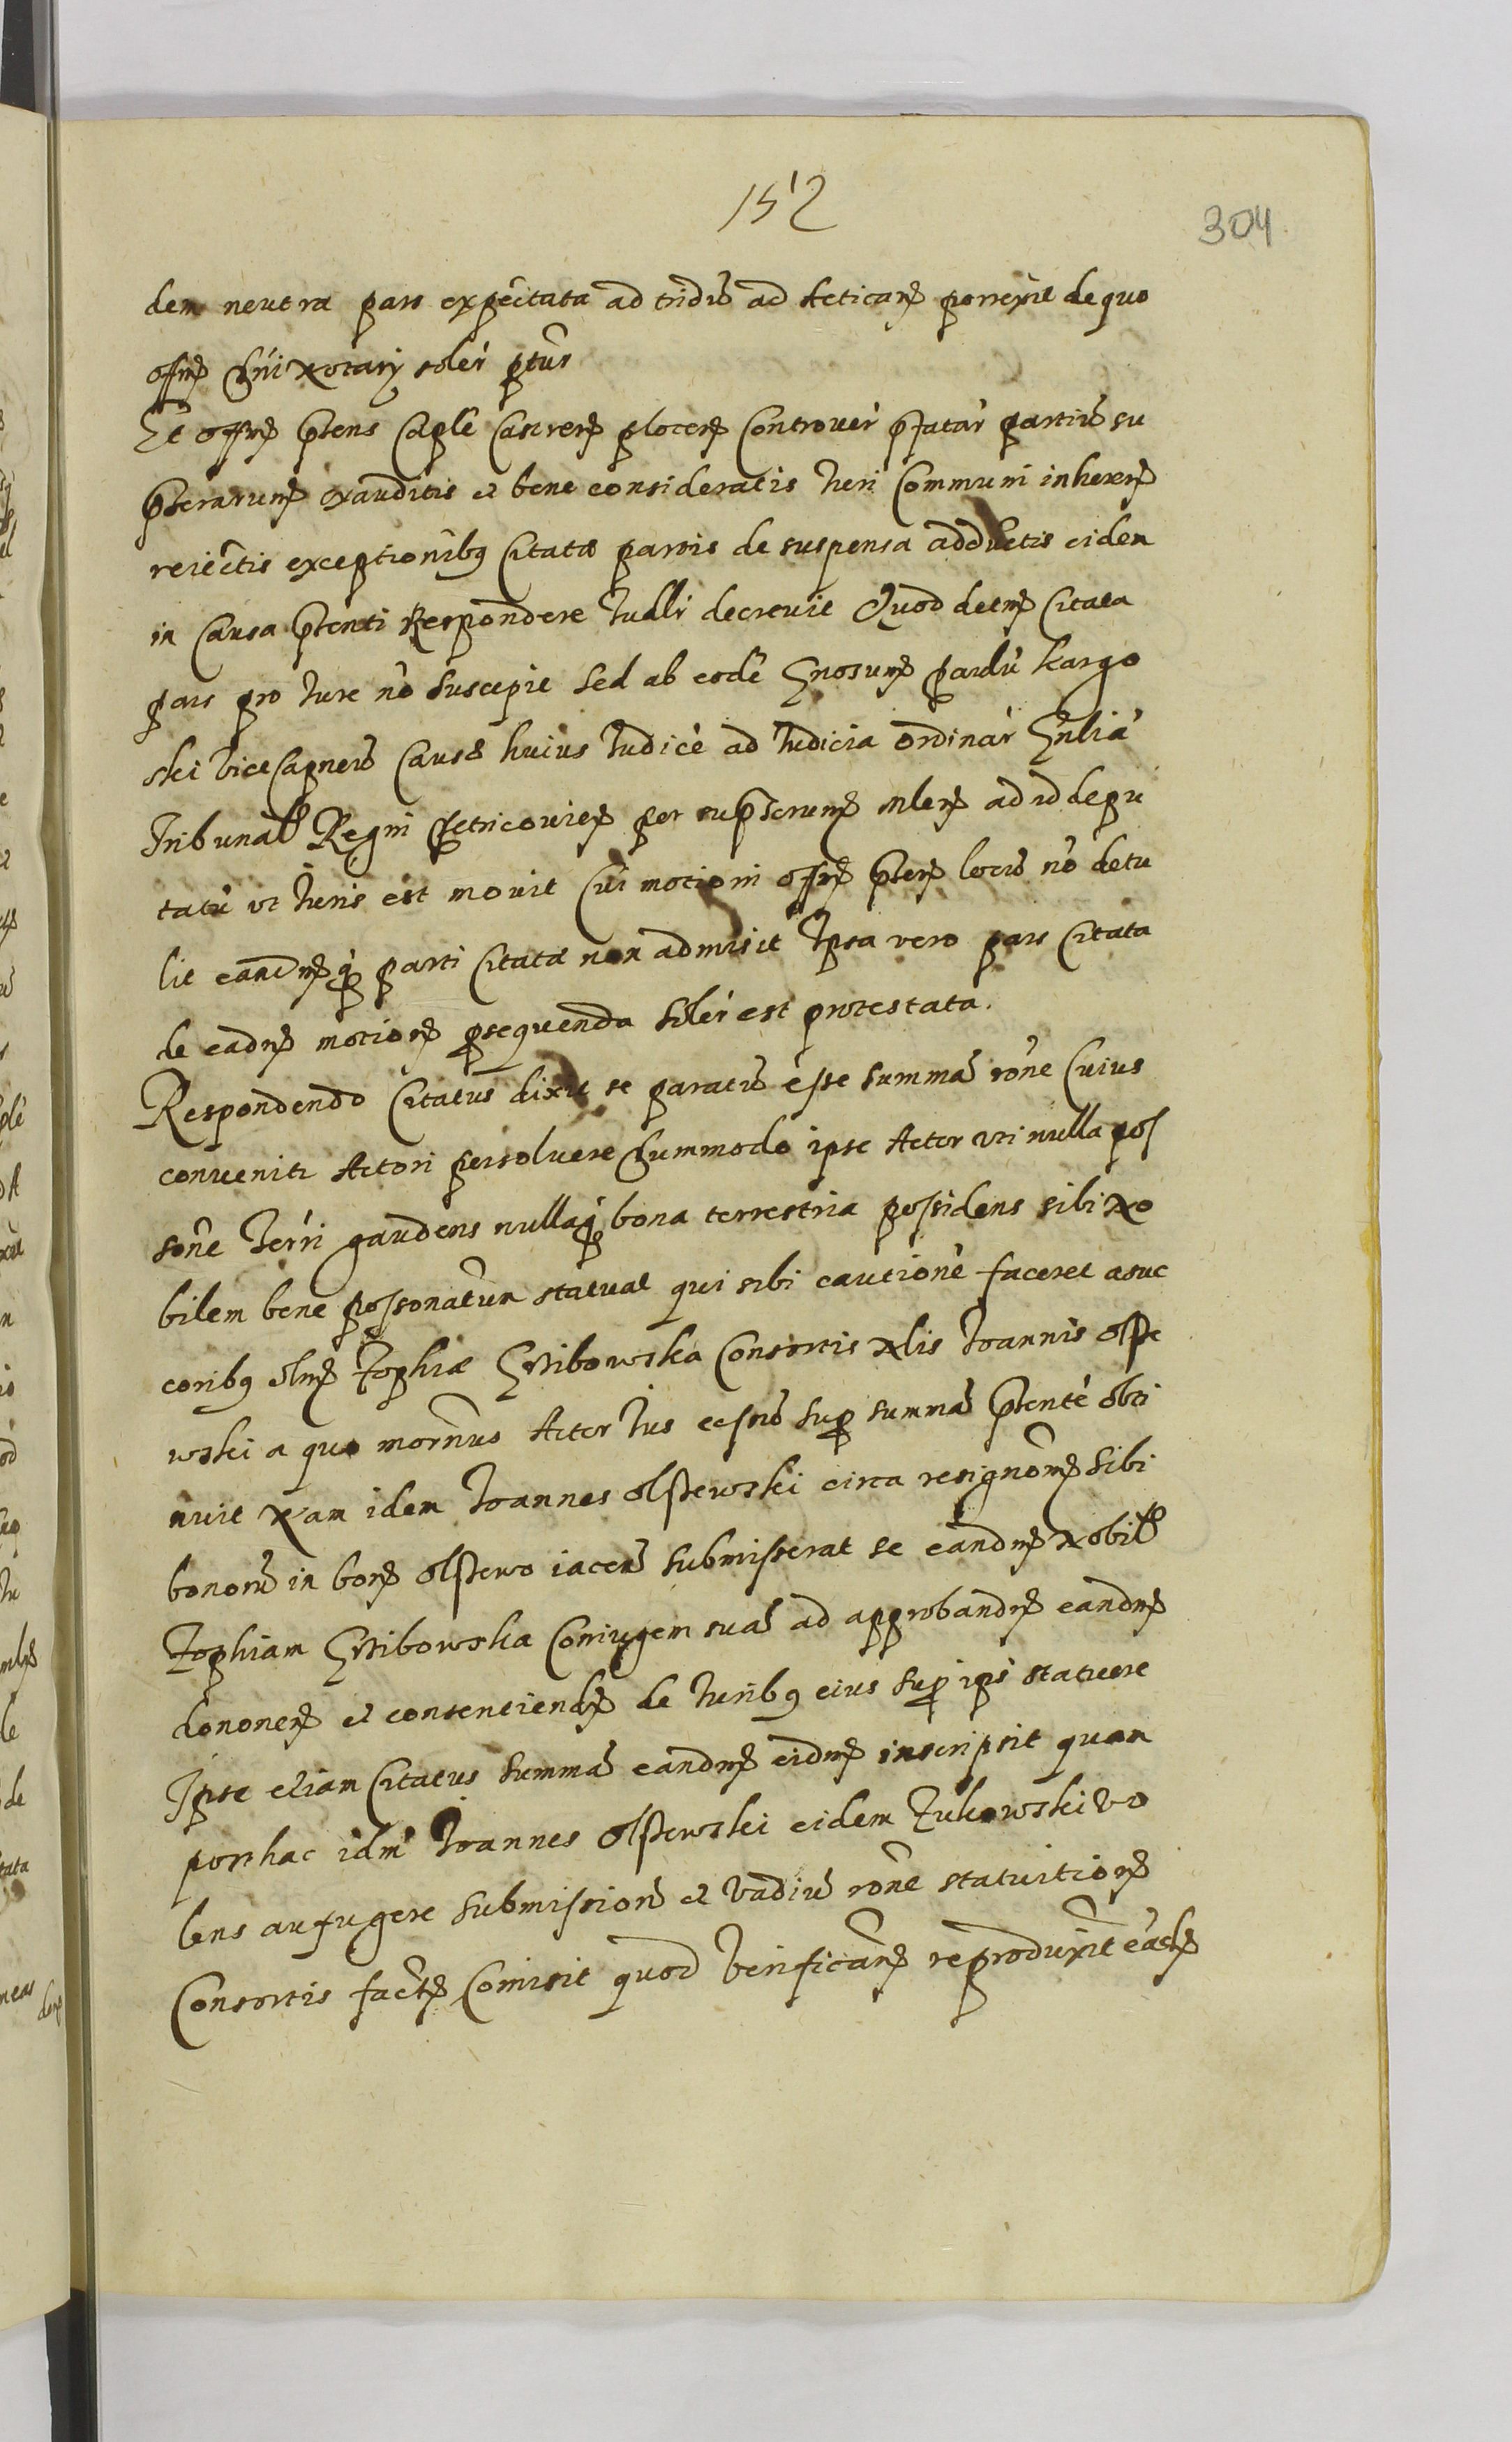 152
304
dem neutra pars expectata ad tridū ad Actican porrexit de quo
offm Dni Notarij soler ptus
Et offm pñens Caple Castren plocen Controuer pfatar partiū su
pterarum exauditis et bene consideratis Iuri Communi inheren
reiectis exceptionibq Citatæ partis de suspensa adductis eidem
in Causa pñenti Respondere Iudli decreuit Quod detm Citata
pars pro Iure nō suscepit sed ab eodē Gnosum pardū Kargo
ski vice Capneū Causæ huius Iudicē ad Iudicia Ordinar Gnlia
Tribunal Regni Petricouien per supscrum mlem ad id depu
tatū vt Iuris est mouit Cui motioni offm pñens locū nō detu
lit eandmq parti Citatæ non admisit Ipsa vero pars Citata
de eadm motione psequenda soler est protestata.
Respondendo Citatus dixit se paratū esse summā rōne Cuius
conuenitr Actori persoluere dummodo ipse Actor vti nulla pos
sōne Terri gaudens nullaq bona terrestria possidens sibi No
bilem bene possonatum statuat qui sibi cautionē faceret a suc
coribq olim Zophiæ Grzibowska Consortis Nlis Ioannis Olsze
wski a quo mornus Actor Ius cessū sup summā pñentē obti
nuit Nam idem Ioannes Olszewski circa resignōem sibi
bonorū in bonis Olszewo iacen submisserat se eandm Nobil
Zophiam Grzibowska Coniugem suā ad approbandm eandm
dononem et consentiendm de Iuribq eius sup ips statuere
Ipse etiam Citatus summā eandm eidm inscripsit quam
posthac idm Ioannes Olszewski eidem Zukowski vo
lens aufugere submissionē et vadiū rōne statuitionis
Consortis factæ Comisit quod verificans reproduxit easdm